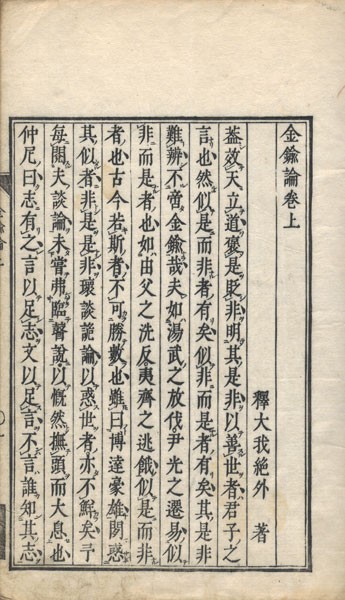 金鍮論卷上
釋大我絶外 著
蓋效天立道褒是貶非明其是非以善世者君子之
言也然似是而非者有矣似非而是者有矣其是非
難辨不啻金鍮哉夫如湯武之放伐尹光之遷易似
非而是者也如由父之洗反夷齊之逃餓似是而非
者也古今若斯者不可勝數也雖曰博達豪雄閎惑
其似者非是是非瓌談詭論以惑世者亦不鮮矣予
每閱夫談論未嘗弗臨聲訟以慨然撫頭而大息也
仲尼曰志有之言以足志文以足言不言誰知其志